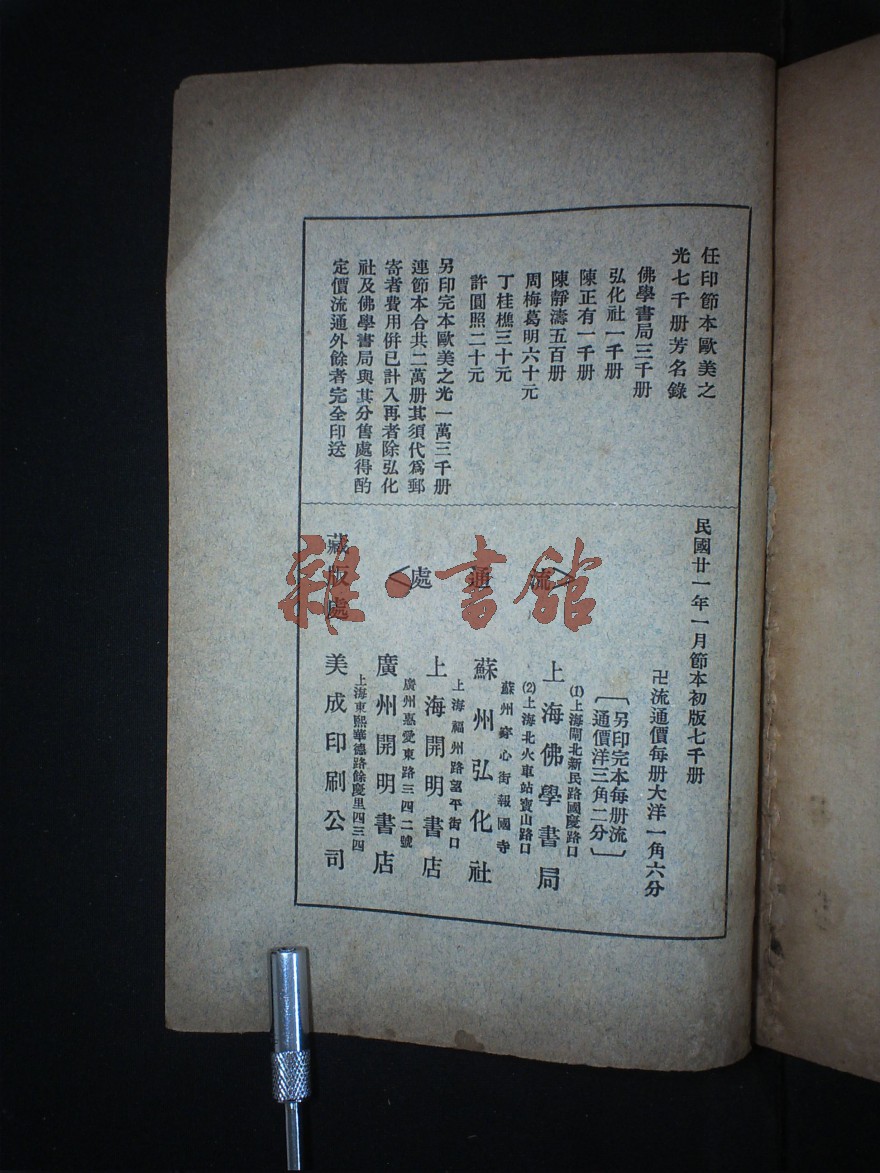 任印節本歐美之
光七千册芳名錄
佛學書局三千册
弘化社一千册
陳正有一千册
陳靜濤五百册
周梅葛明六十元
丁桂樵三十元
許圓照二十元
另印完本歐美之光一萬三千册
連節本合共二萬册其須代爲郵
寄者費用併已計入再者除弘化
社及佛學書局與其分售處得酌
定價流通外餘者完全印送
民國廿一年一月節本初版七千册
卍流通價每册大洋一角六分
〔另印完本每册流〕
〔通價洋三角二分〕
流通處
(1)上海閘北新民路國慶路口
上海佛學書局
(2)上海北火車站寶山路口
蘇州穿心街報國寺
蘇州弘化社
上海福州路望平街口
上海開明書店
廣州惠愛東路三四二號
廣州開明書店
上海東熙華德路餘慶里四三四
藏版處 美成印刷公司
雜·書館